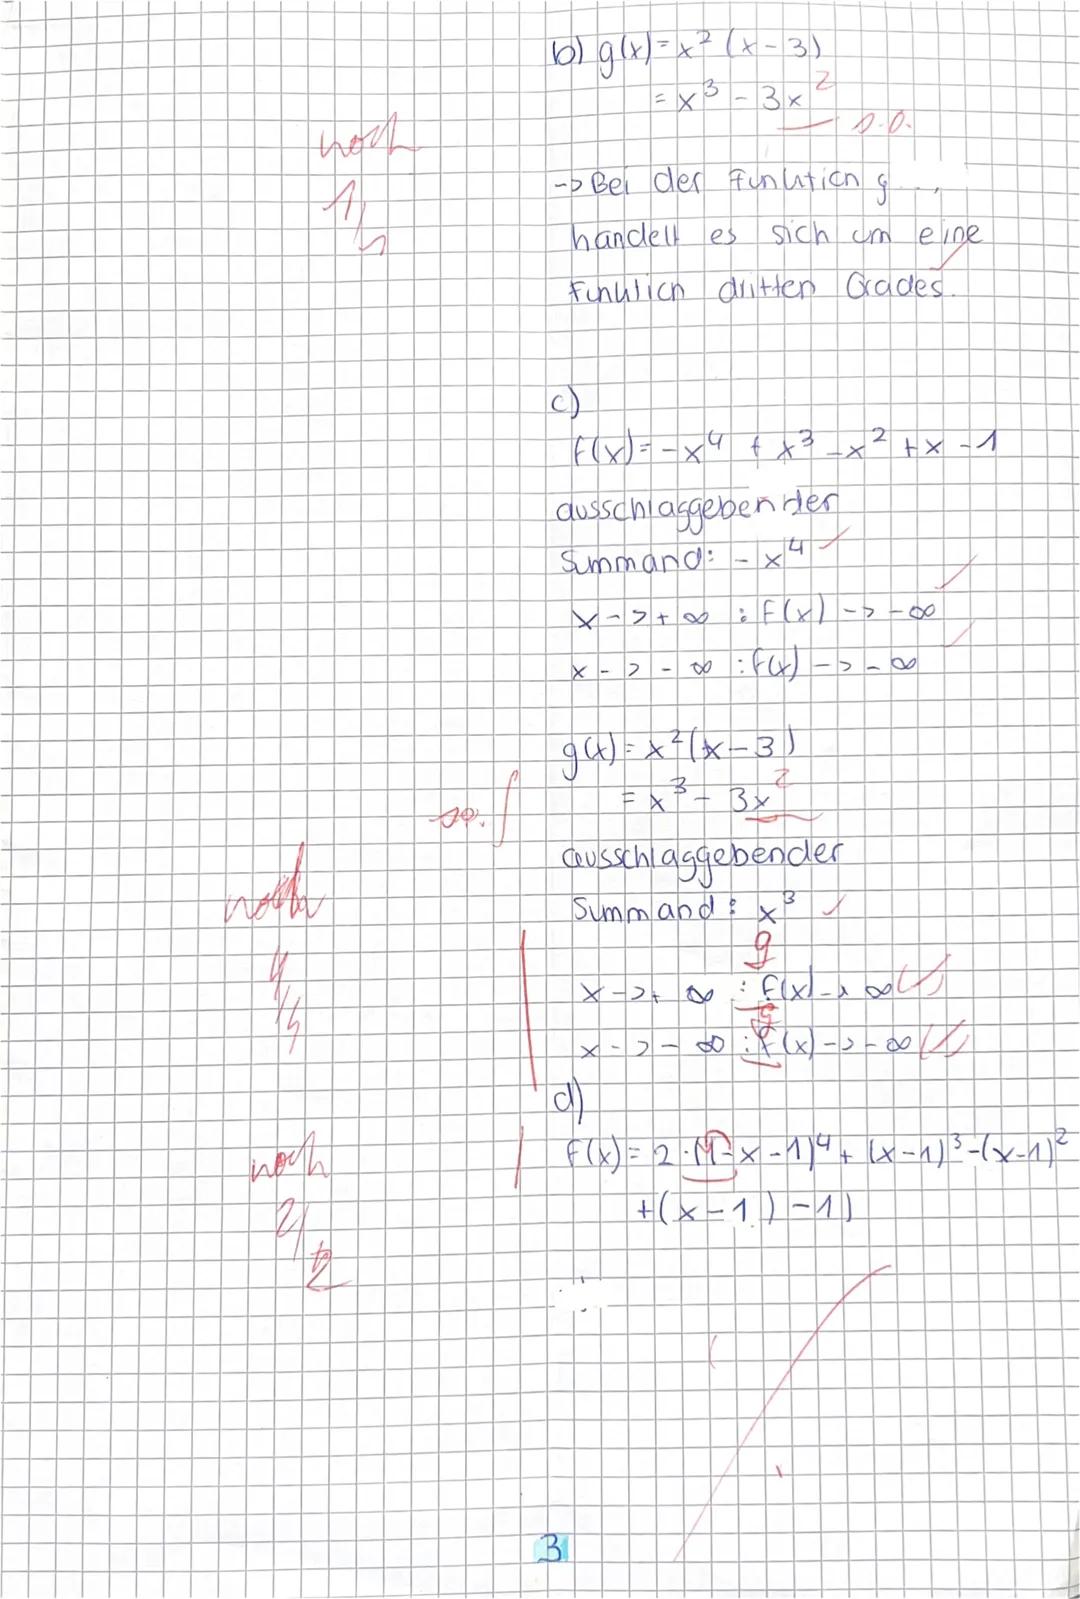 b) g(x) = x² (x - 3)
= x³ - 3x²
s.o.
noch
-> Bei der Funktion g
1/5
handelt es sich um eine
Funktion dritten Grades.
c)
f(x) = -x⁴ + x³ - x² + x - 1
ausschlaggebender
Summand: - x⁴
x -> + ∞ : f(x) -> - ∞
x -> - ∞ : f(x) -> - ∞
g(x) = x² (x - 3)
= x³ - 3x²
so.
ausschlaggebender
noch
Summand : x³
g
x -> + ∞ : f(x) -> ∞ (✓)
4/5
g
x -> - ∞ : f(x) -> - ∞ (✓)
d)
f(x) = 2 · (1 - x - 1)⁴ + (x - 1)³ - (x - 1)²
noch
+ (x - 1) - 1)
2/2
3